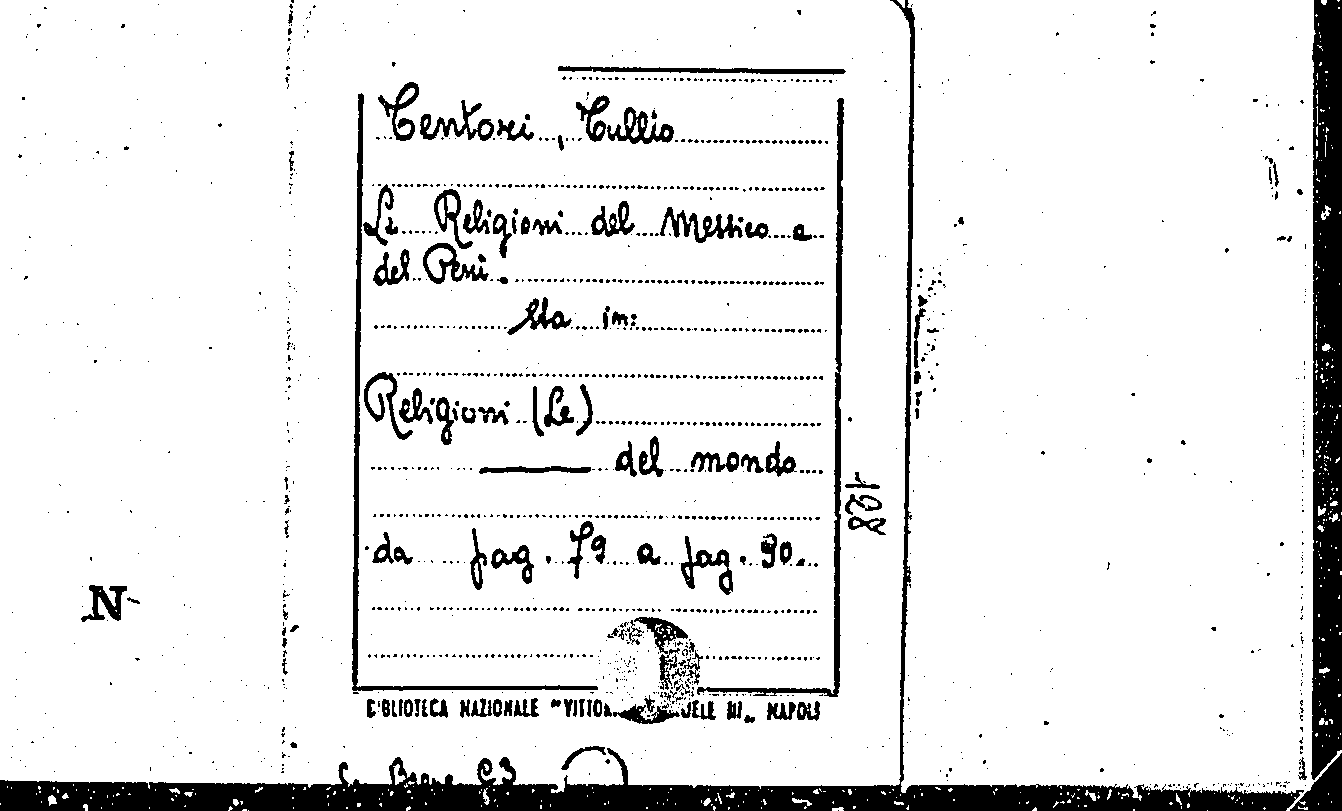 Tentori, Tullio
Le Religioni del Messico e
del Perù.
Sta in:
Religioni (Le)
del mondo
da pag. 79 a pag. 90.
128
N
BIBLIOTECA NAZIONALE "VITTOR UELE III" NAPOLI